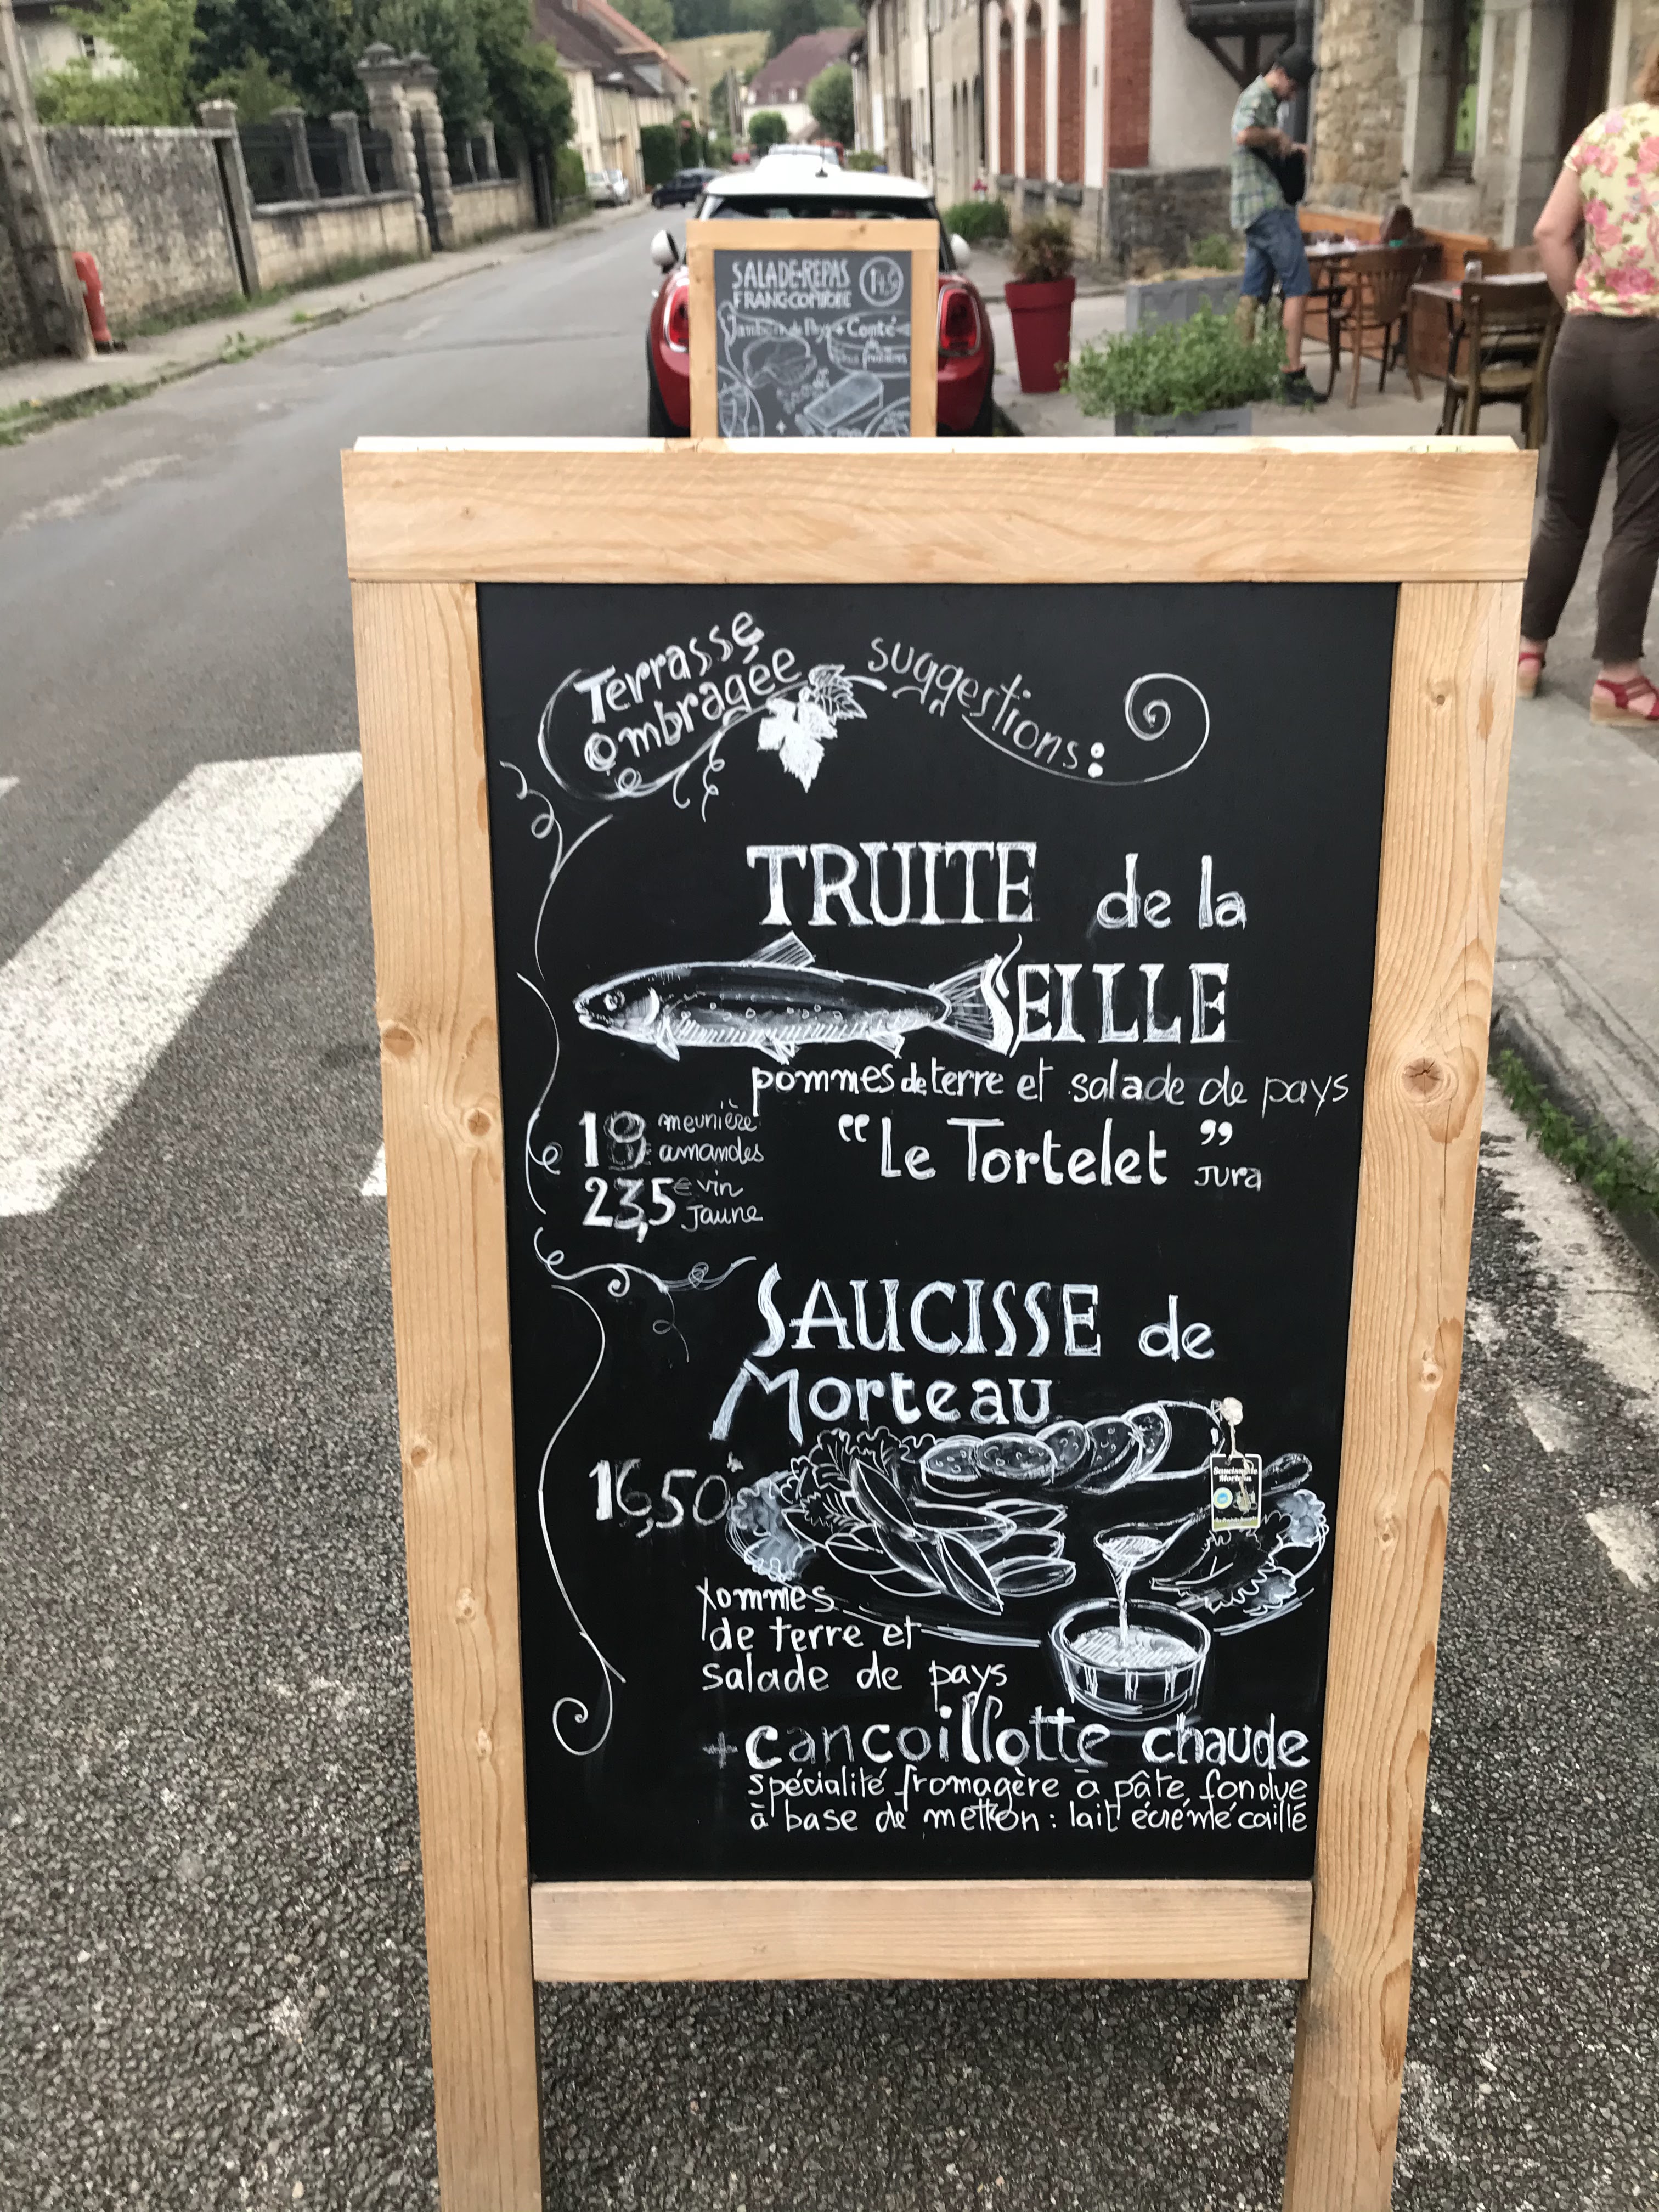 SALADE-REPAS
FRANC-COMTOISE
Jambon de Pays + Comté
Terrasse
ombragée
suggestions:
TRUITE de la
SEILLE
pommes de terre et salade de pays
18 meunière
amandes
23,5€ vin
Jaune
"Le Tortelet"
Jura
SAUCISSE de
Morteau
16,50
Saucisse de
Morteau
Pommes
de terre et
salade de pays
+ cancoillotte chaude
spécialité fromagère à pâte fondue
à base de metton : lait écrémé caillé